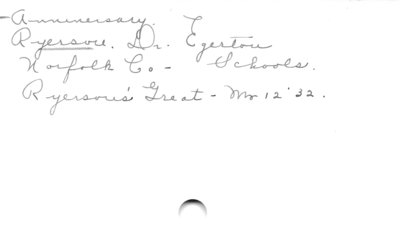 - Anniversary.
Ryerson, Dr. Egerton
Norfolk Co - Schools.
Ryerson's Great - My 12 '32.